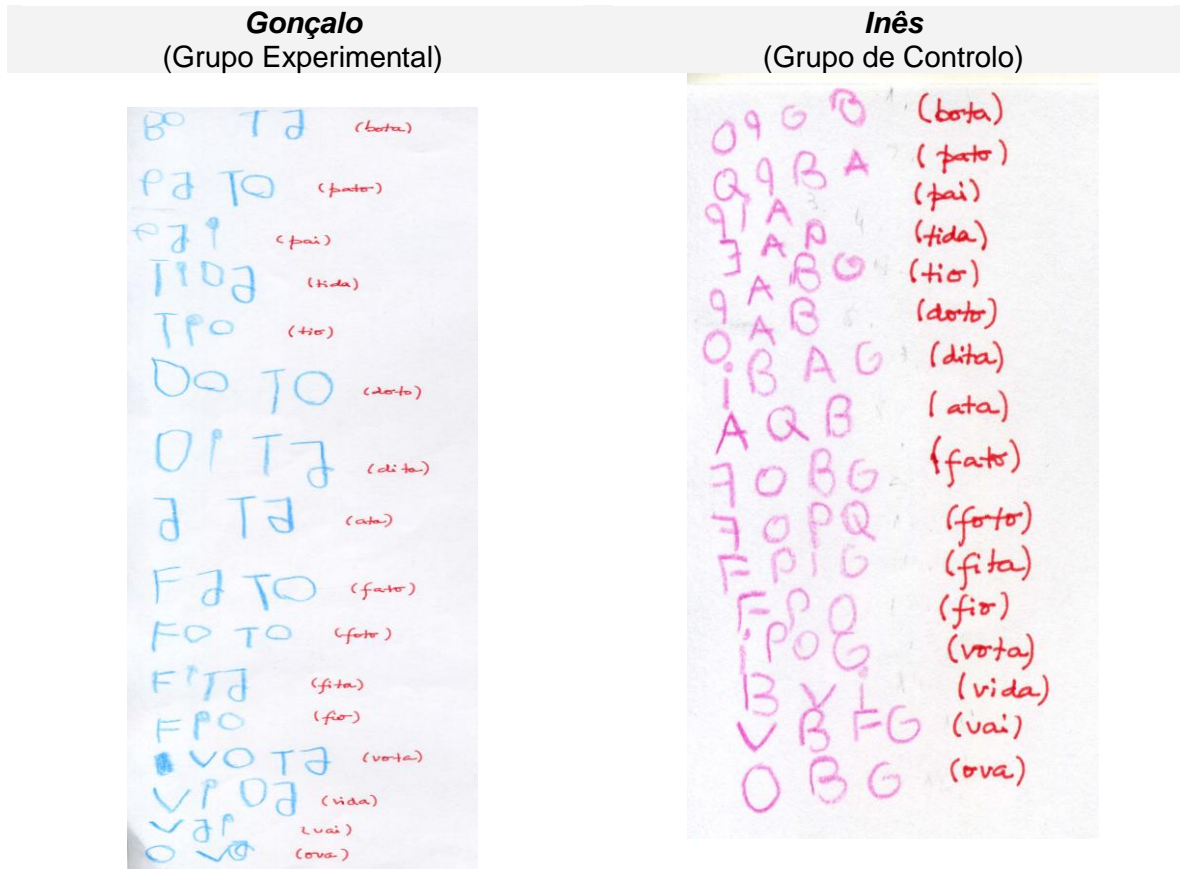 Gonçalo
(Grupo Experimental)
BO Ta (bota)
Pa TO (pato)
Pai (pai)
TIDa (tida)
TiO (tio)
DO TO (doto)
DI Ta (dita)
a Ta (ata)
Fa TO (fato)
FO TO (foto)
FiTa (fita)
FiO (fio)
VO Ta (vota)
Vi Da (vida)
Vai (vai)
O Va (ova)
Inês
(Grupo de Controlo)
O 9 G B (bota)
Q 9 B A (pato)
9 i A (pai)
F A P (tida)
9 A B G (tio)
O A B (doto)
i B A G (dita)
A Q B (ata)
F O B G (fato)
F O P Q (foto)
F P I G (fita)
F P O (fio)
i P O G (vota)
B V i (vida)
V B F G (vai)
O B G (ova)